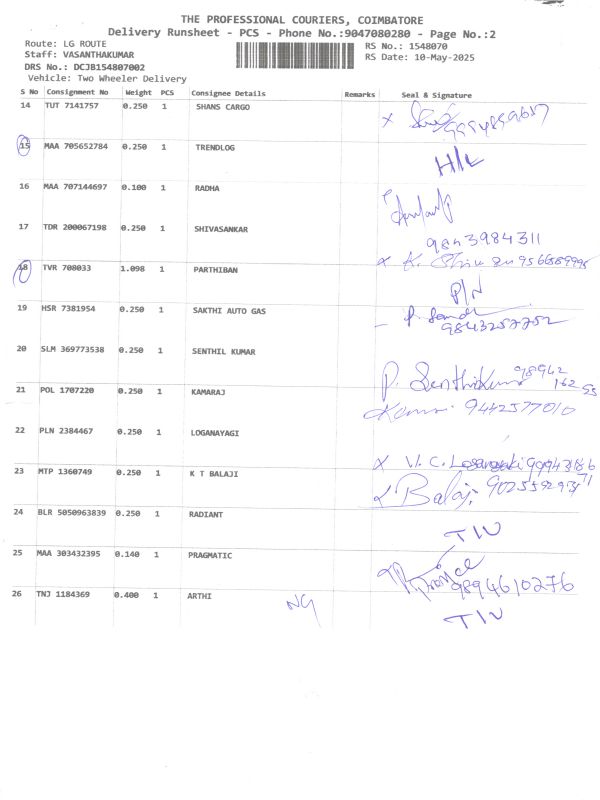 THE PROFESSIONAL COURIERS, COIMBATORE
Delivery Runsheet - PCS - Phone No.:9047080280 - Page No.:2
Route: LG ROUTE
Staff: VASANTHAKUMAR
DRS No.: DCJB154807002
Vehicle: Two Wheeler Delivery
RS No.: 1548070
RS Date: 10-May-2025
S No Consignment No Weight PCS Consignee Details Remarks Seal & Signature
14 TUT 7141757 0.250 1 SHANS CARGO
15 MAA 705652784 0.250 1 TRENDLOG
H/L
16 MAA 707144697 0.100 1 RADHA
17 TDR 200067198 0.250 1 SHIVASANKAR
9843984311
18 TVR 708033 1.098 1 PARTHIBAN
P/N
19 HSR 7381954 0.250 1 SAKTHI AUTO GAS
9843257752
20 SLM 369773538 0.250 1 SENTHIL KUMAR
P. Senthilkumar 98942
162
21 POL 1707220 0.250 1 KAMARAJ
9442577010
22 PLN 2384467 0.250 1 LOGANAYAGI
23 MTP 1360749 0.250 1 K T BALAJI
Balaji
24 BLR 5050963839 0.250 1 RADIANT
TIN
25 MAA 303432395 0.140 1 PRAGMATIC
9894610276
26 TNJ 1184369 0.400 1 ARTHI
TIN